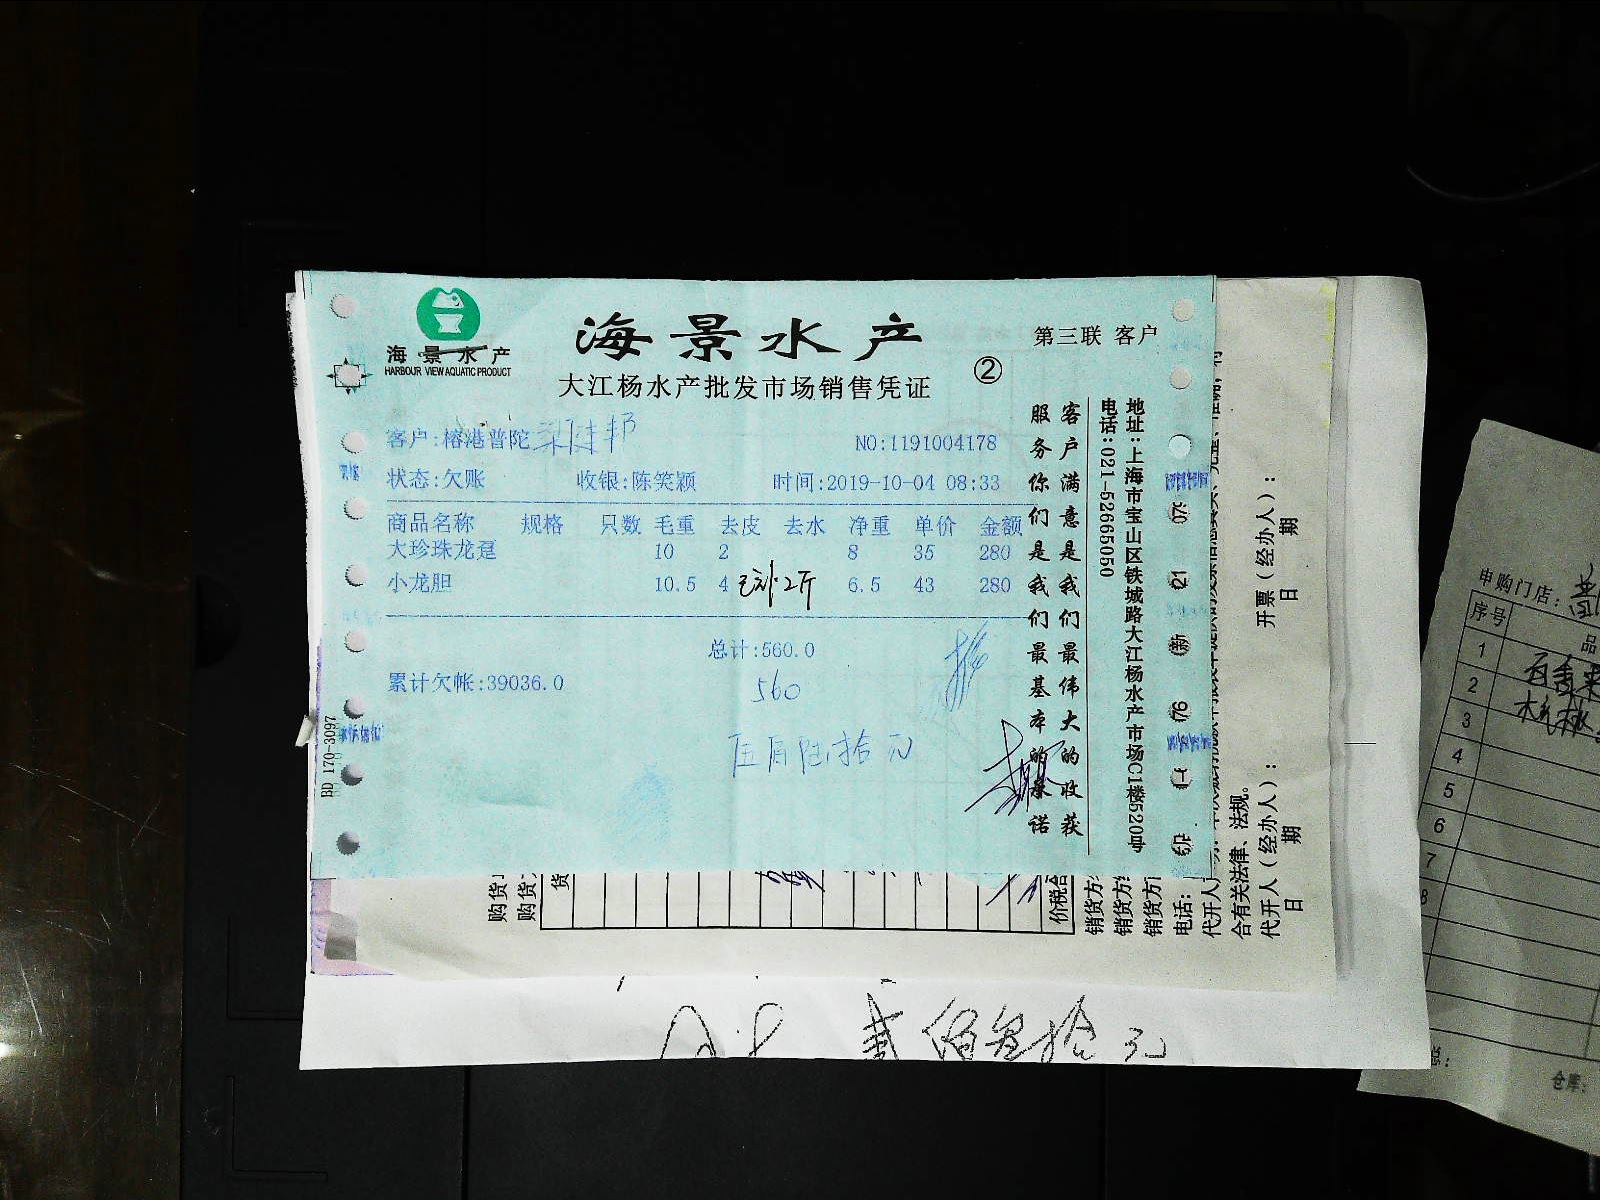 海景水产
HARBOUR VIEW AQUATIC PRODUCT
海景水产
大江杨水产批发市场销售凭证
②
第三联 客户
客户:榕港普陀
NO:1191004178
状态:欠账 收银:陈笑颖 时间:2019-10-04 08:33
商品名称 规格 只数 毛重 去皮 去水 净重 单价 金额
大珍珠龙趸 10 2 8 35 280
小龙胆 10.5 4 2斤 6.5 43 280
总计:560.0
累计欠帐:39036.0
560
伍佰陆拾元
客户满意是我们最伟大的收获
服务你们是我们最基本的承诺
地址:上海市宝山区铁城路大江杨水产市场C1楼520号
电话:021-52665050
BD 170-3097
购货
购货
货
价税合
销货方
销货方
销货方
电话:
代开人
合有关法律、法规。
代开人(经办人):
日 期
开票(经办人):
日 期
元
申购门店:
序号 品
1
2
3
4
5
6
7
8
总:
仓库: